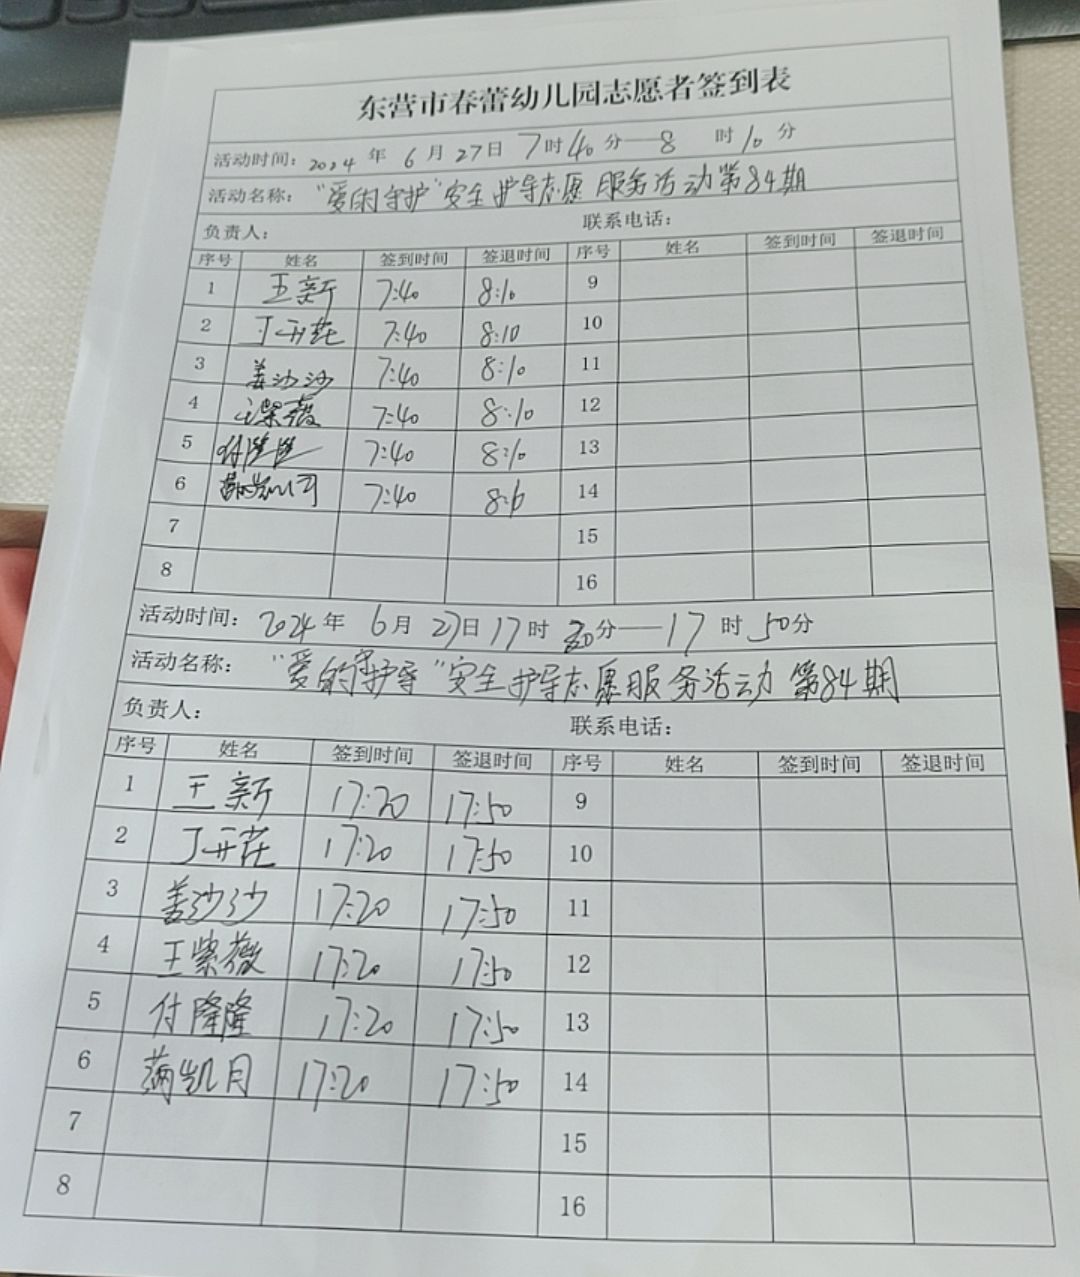 东营市春蕾幼儿园志愿者签到表
活动时间：2024 年 6 月 27日 7时40 分—8 时10 分
活动名称：“爱的守护”安全护导志愿服务活动第84期
负责人： 联系电话：
序号 姓名 签到时间 签退时间 序号 姓名 签到时间 签退时间
1 王新 7:40 8:10 9
2 丁开花 7:40 8:10 10
3 姜沙沙 7:40 8:10 11
4 王紫薇 7:40 8:10 12
5 付隆隆 7:40 8:10 13
6 7:40 8:10 14
7 15
8 16
活动时间：2024年 6月27日17时20分—17 时50分
活动名称：“爱的守护导”安全护导志愿服务活动第84期
负责人： 联系电话：
序号 姓名 签到时间 签退时间 序号 姓名 签到时间 签退时间
1 王新 17:20 17:50 9
2 丁开花 17:20 17:50 10
3 姜沙沙 17:20 17:50 11
4 王紫薇 17:20 17:50 12
5 付隆隆 17:20 17:50 13
6 凯月 17:20 17:50 14
7 15
8 16